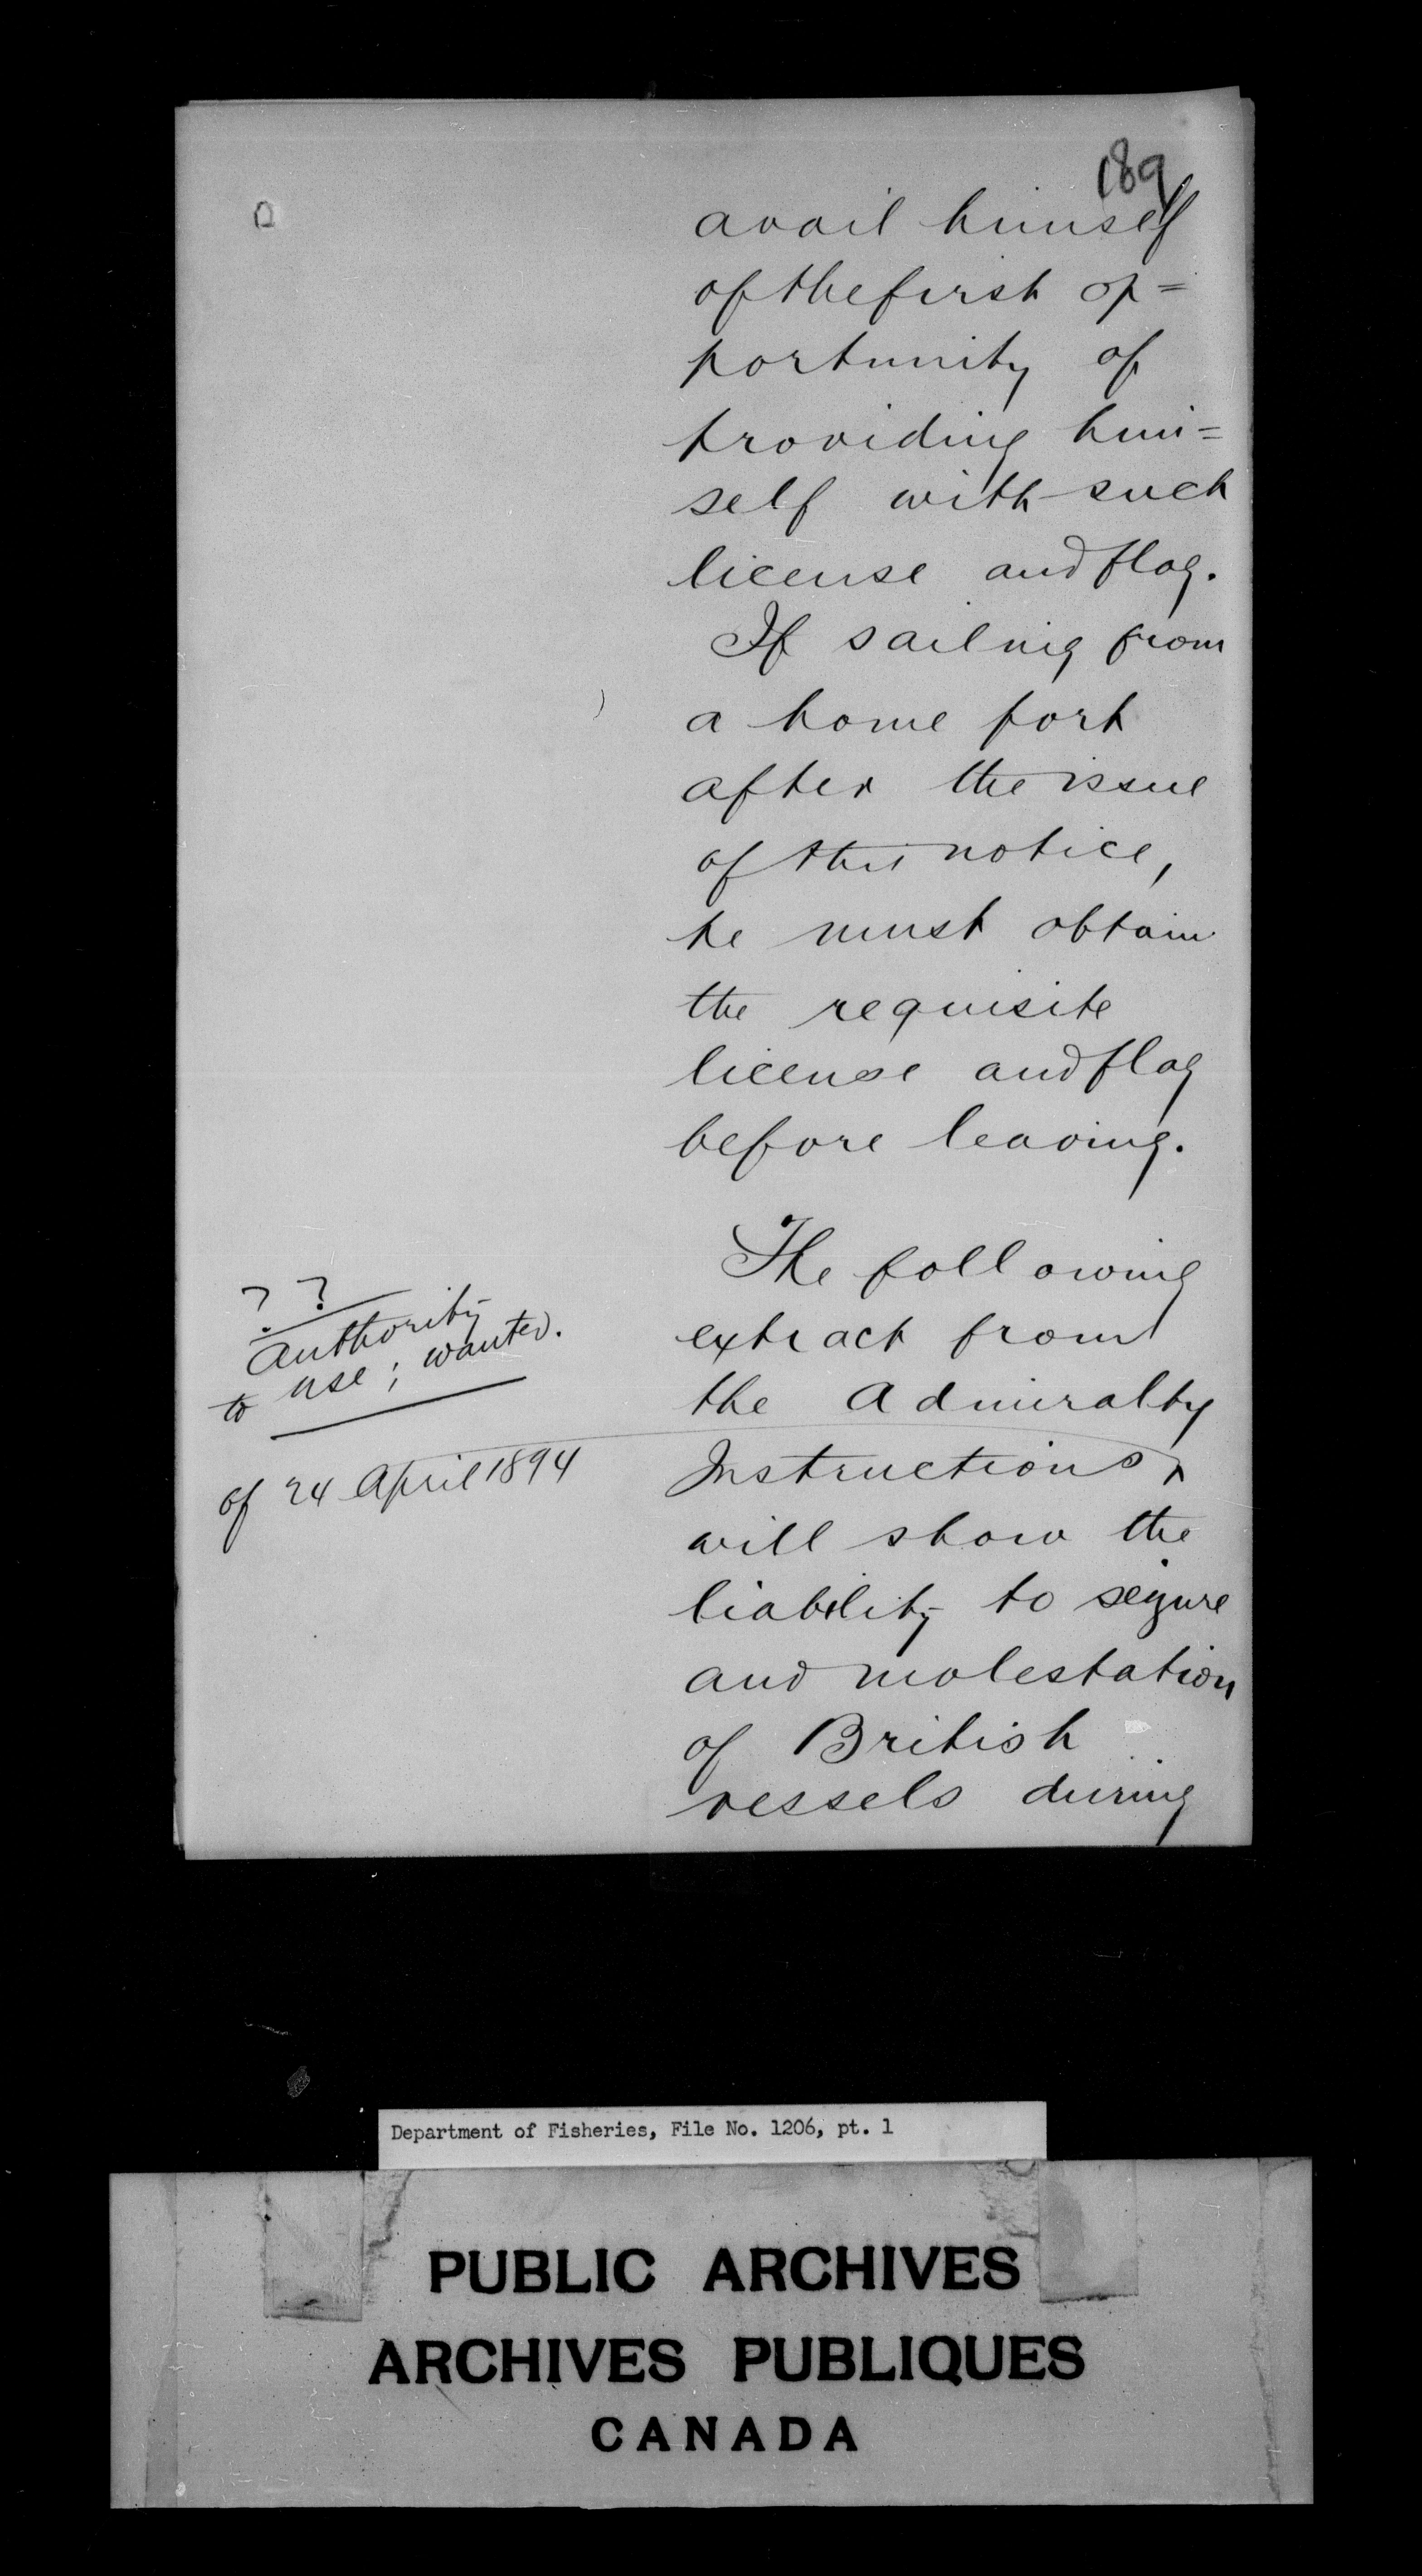 189
avail himself
of the first op=
portunity of
providing him=
self with such
license and flag.
If sailing from
a home port
after the issue
of this notice,
he must obtain
the requisite
license and flag
before leaving.
The following
extract from
the Admiralty
Instructions
will show the
liability to seizure
and molestation
of British
vessels during
? ?
Authority
to use; wanted.
of 24 April 1894
Department of Fisheries, File No. 1206, pt. 1
PUBLIC ARCHIVES
ARCHIVES PUBLIQUES
CANADA